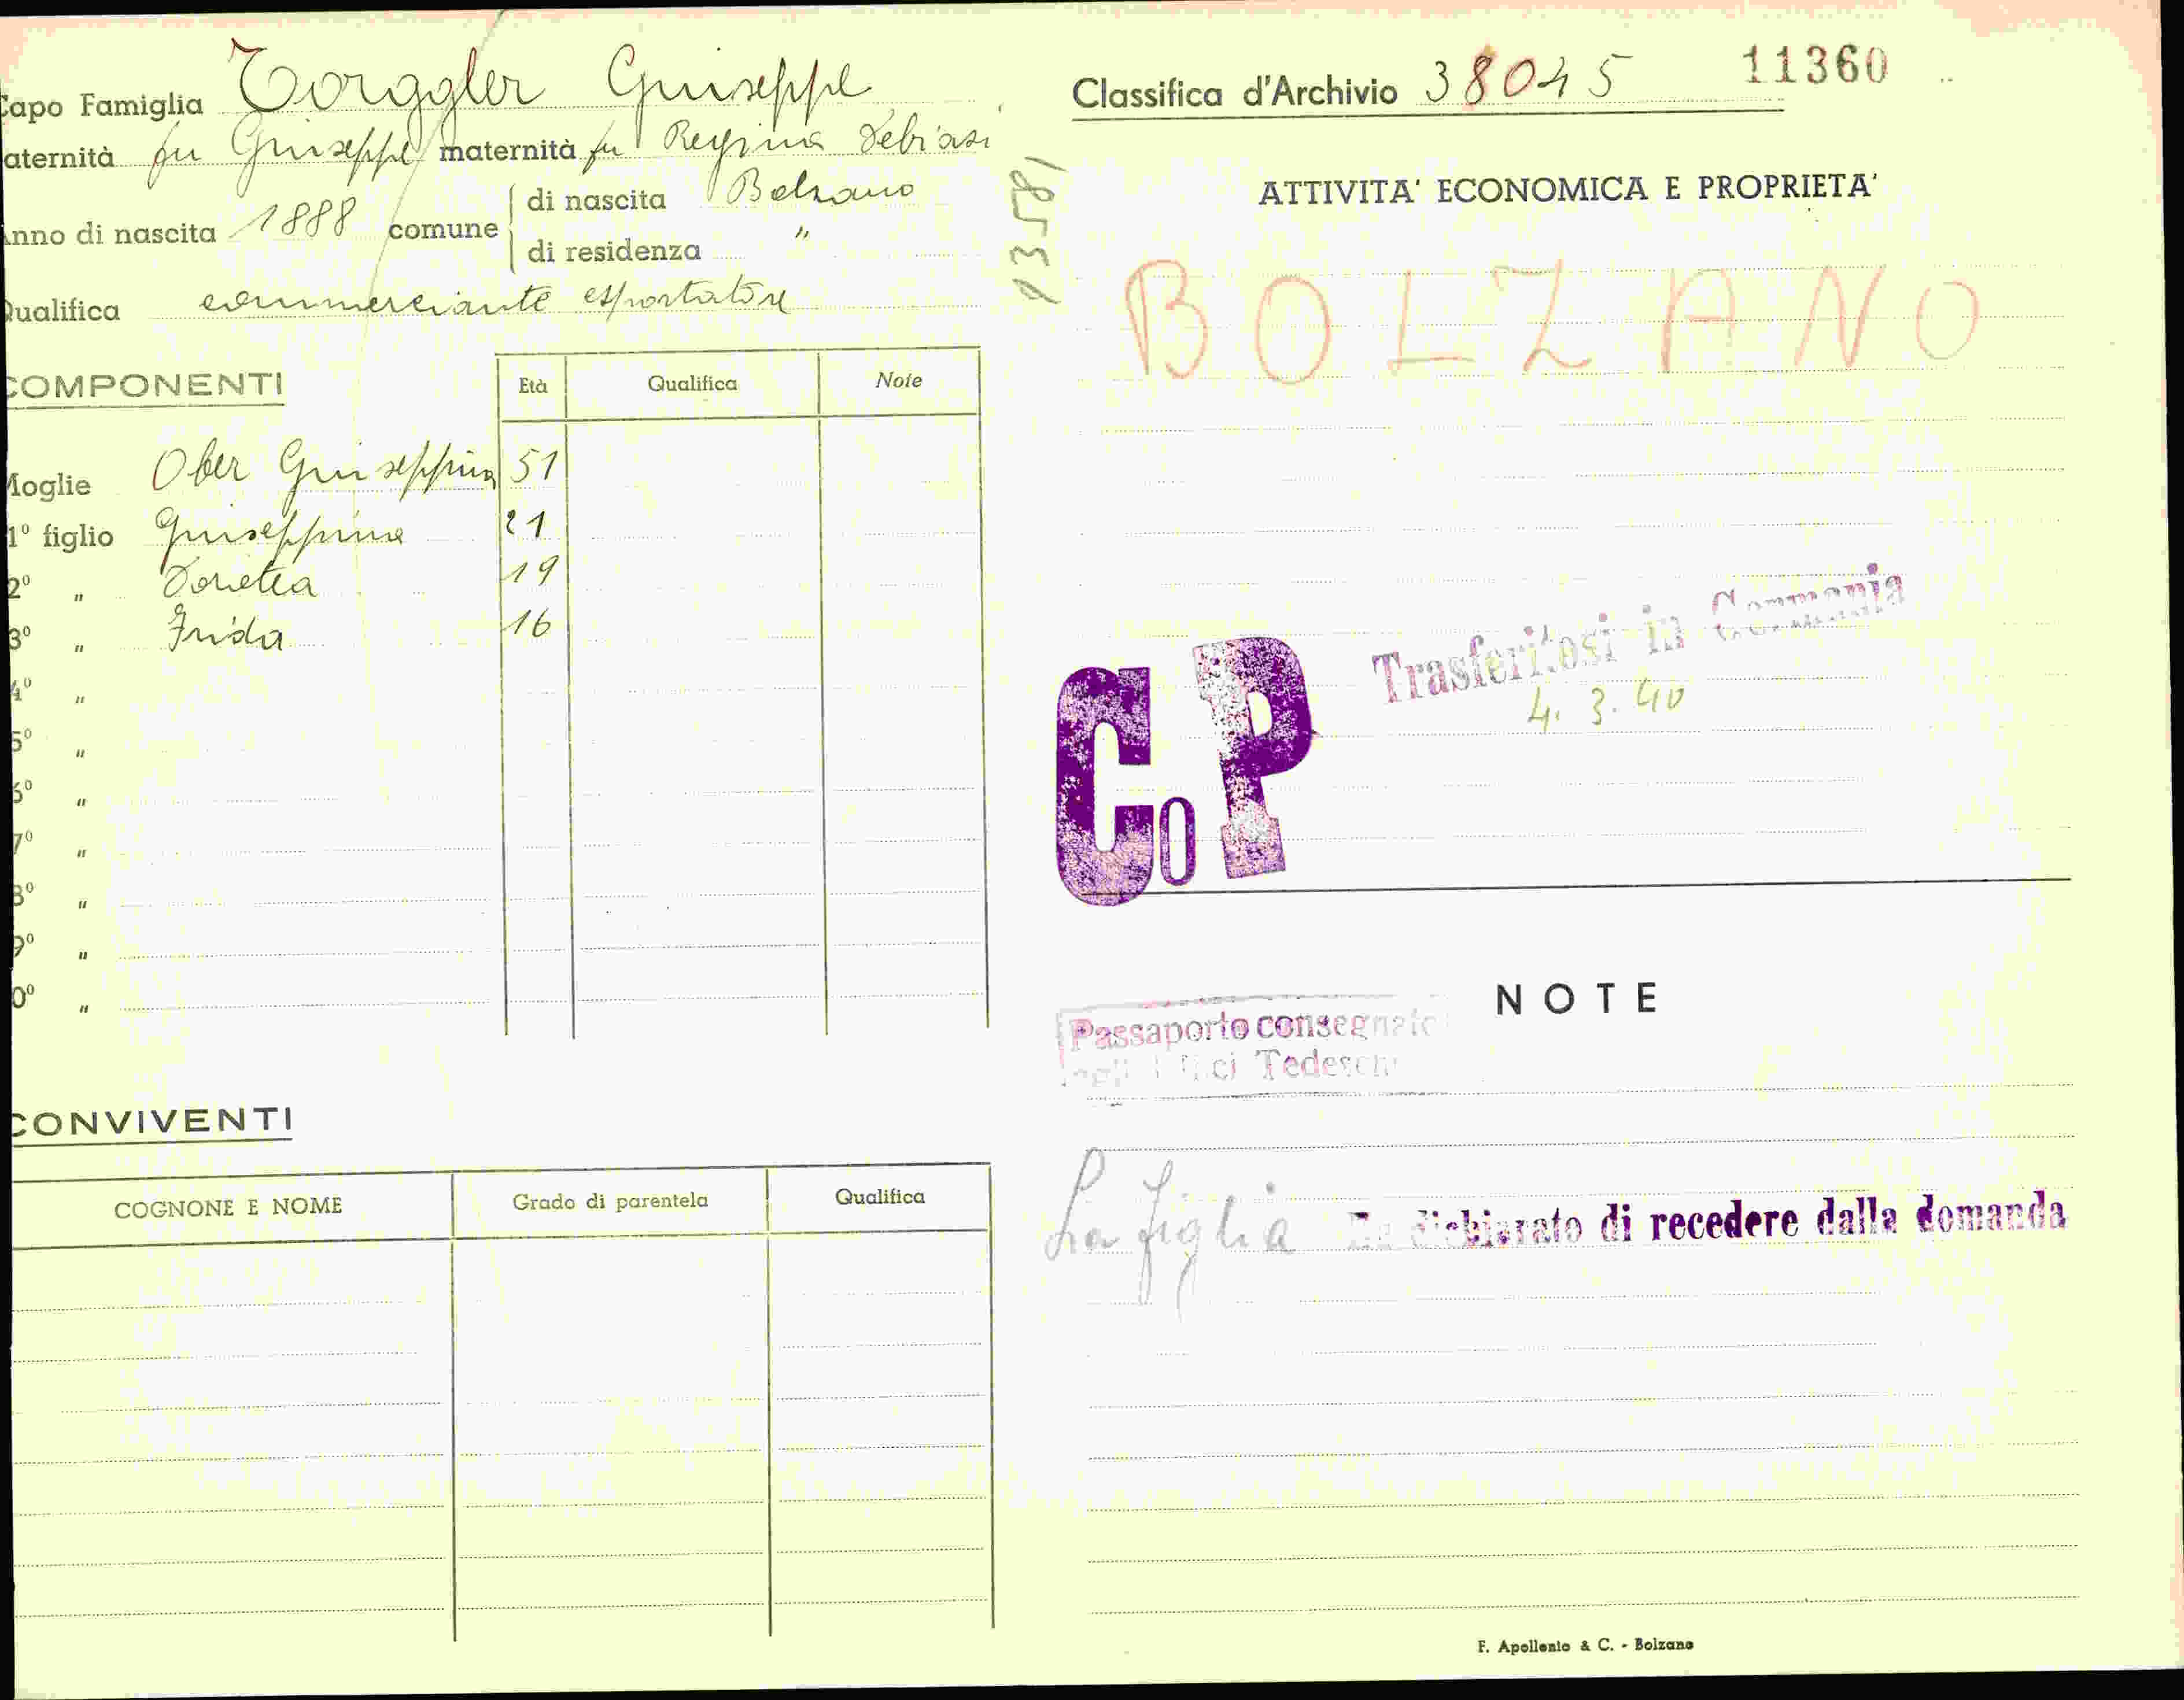 Capo Famiglia Torggler Giuseppe
aternità fu Giuseppe maternità fu Regina Debiasi
Anno di nascita 1888 comune di nascita Bolzano
di residenza "
Qualifica commerciante esportatore
COMPONENTI
Età Qualifica Note
Moglie Ober Giuseppina 51
1° figlio Giuseppina 21
2° " Dorotea 19
3° " Frida 16
4° "
5° "
6° "
7° "
8° "
9° "
0° "
CONVIVENTI
COGNONE E NOME Grado di parentela Qualifica
Classifica d'Archivio 38045 11360
ATTIVITA' ECONOMICA E PROPRIETA'
BOLZANO
Trasferitosi in Germania
4.3.40
CoP
NOTE
Passaporto consegnato
Tedeschi
La figlia Ha dichiarato di recedere dalla domanda
F. Apollonio & C. - Bolzano